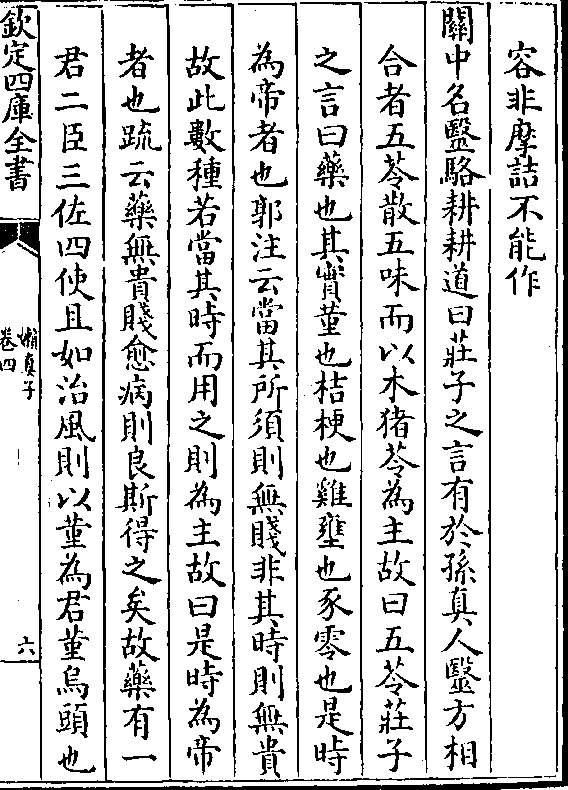 容非摩詰不能作
關中名毉駱耕耕道曰莊子之言有於孫真人毉方相
合者五苓散五味而以木猪苓為主故曰五苓莊子
之言曰藥也其實菫也桔梗也雞壅也豕零也是時
為帝者也郭注云當其所須則無賤非其時則無貴
故此數種若當其時而用之則為主故曰是時為帝
者也䟽云藥無貴賤愈病則良斯得之矣故藥有一
君二臣三佐四使且如治風則以菫為君菫烏頭也
欽定四庫全書
嬾真子
卷四
六